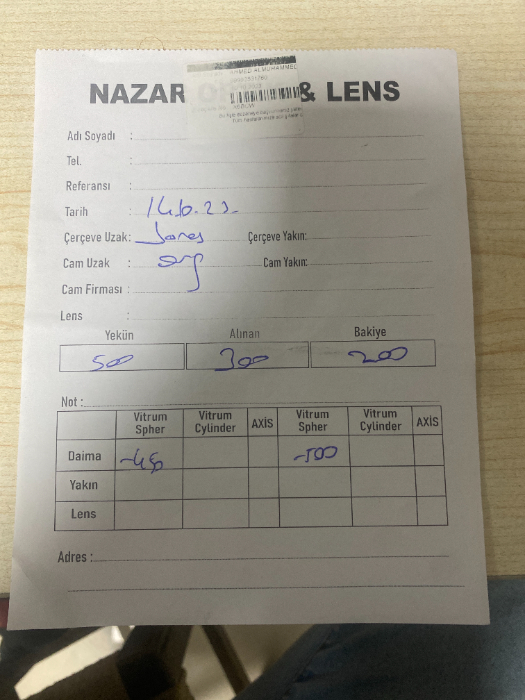 AHMED ALMOHAMMED
NAZAR & LENS
Adı Soyadı :
Tel. :
Referansı :
Tarih :
Çerçeve Uzak: Çerçeve Yakın:
Cam Uzak : Cam Yakın:
Cam Firması :
Lens :
Yekün Alınan Bakiye
500 300 200
Not :
Vitrum Spher Vitrum Cylinder AXİS Vitrum Spher Vitrum Cylinder AXİS
Daima -500
Yakın
Lens
Adres :